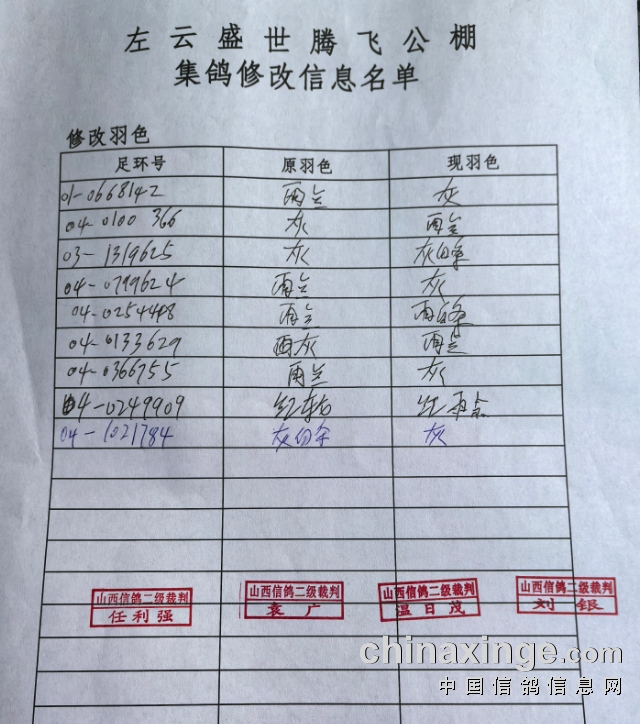 左云盛世腾飞公棚
集鸽修改信息名单
修改羽色
足环号 原羽色 现羽色
01-0668142 雨兰 灰
04-0100366 灰 雨兰
03-1319625 灰 灰白条
04-0799624 雨兰 灰
04-0254448 雨兰 雨白条
04-0133629 雨灰 雨兰
04-0366755 雨兰 灰
04-0249909 红 红雨点
04-1021784 灰白条 灰
山西信鸽二级裁判 山西信鸽二级裁判 山西信鸽二级裁判 山西信鸽二级裁判
任利强 袁广 温日茂 刘银
chinaxinge.com
中国信鸽信息网